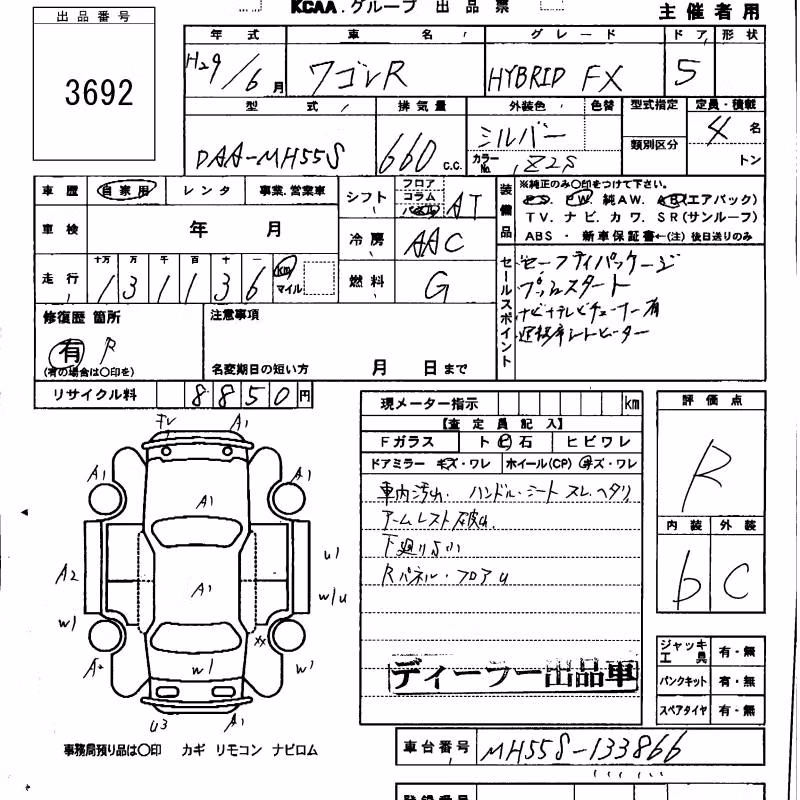 KCAA.グループ 出品票
主催者用
出品番号
3692
年式 車名 グレード ドア 形状
H29/6月 ワゴンR HYBRID FX 5
型式 排気量 外装色 色替 型式指定 定員・積載
DAA-MH55S 660 c.c. シルバー 類別区分 4名
カラーNo. Z2S トン
車歴 自家用 レンタ 事業.営業車
シフト フロア コラム AT
装備品 ※純正のみ〇印をつけて下さい。
P.S. P.W. 純AW. AB(エアバック)
TV. ナビ. カワ. SR(サンルーフ)
ABS ・ 新車保証書←(注)後日送りのみ
車検 年 月
冷房 AAC
走行 十万 万 千 百 十 一
131136 km マイル
燃料 G
セールスポイント
セーフティパッケージ
プッシュスタート
ナビ+テレビチューナー有
運転席シートヒーター
修復歴 箇所
有 R
(有の場合は〇印を)
注意事項
名変期日の短い方 月 日まで
リサイクル料 8850円
現メーター指示 km
【査定員記入】
Fガラス ト ビ 石 ヒビワレ
ドアミラー キズ・ワレ ホイール(CP) キズ・ワレ
車内汚れ. ハンドル・シート スレ.ヘタリ
アームレスト破れ
下廻りサビ
Rパネル・フロアU
ディーラー出品車
評価点
R
内装 外装
b C
ジャッキ 工具 有・無
パンクキット 有・無
スペアタイヤ 有・無
A1
A1 A1
A1
A1
U1
A2
W/U
W1
XX
W1
A2
W1
U3 A1
事務局預り品は〇印 カギ リモコン ナビロム
車台番号 MH55S-133866
登録番号